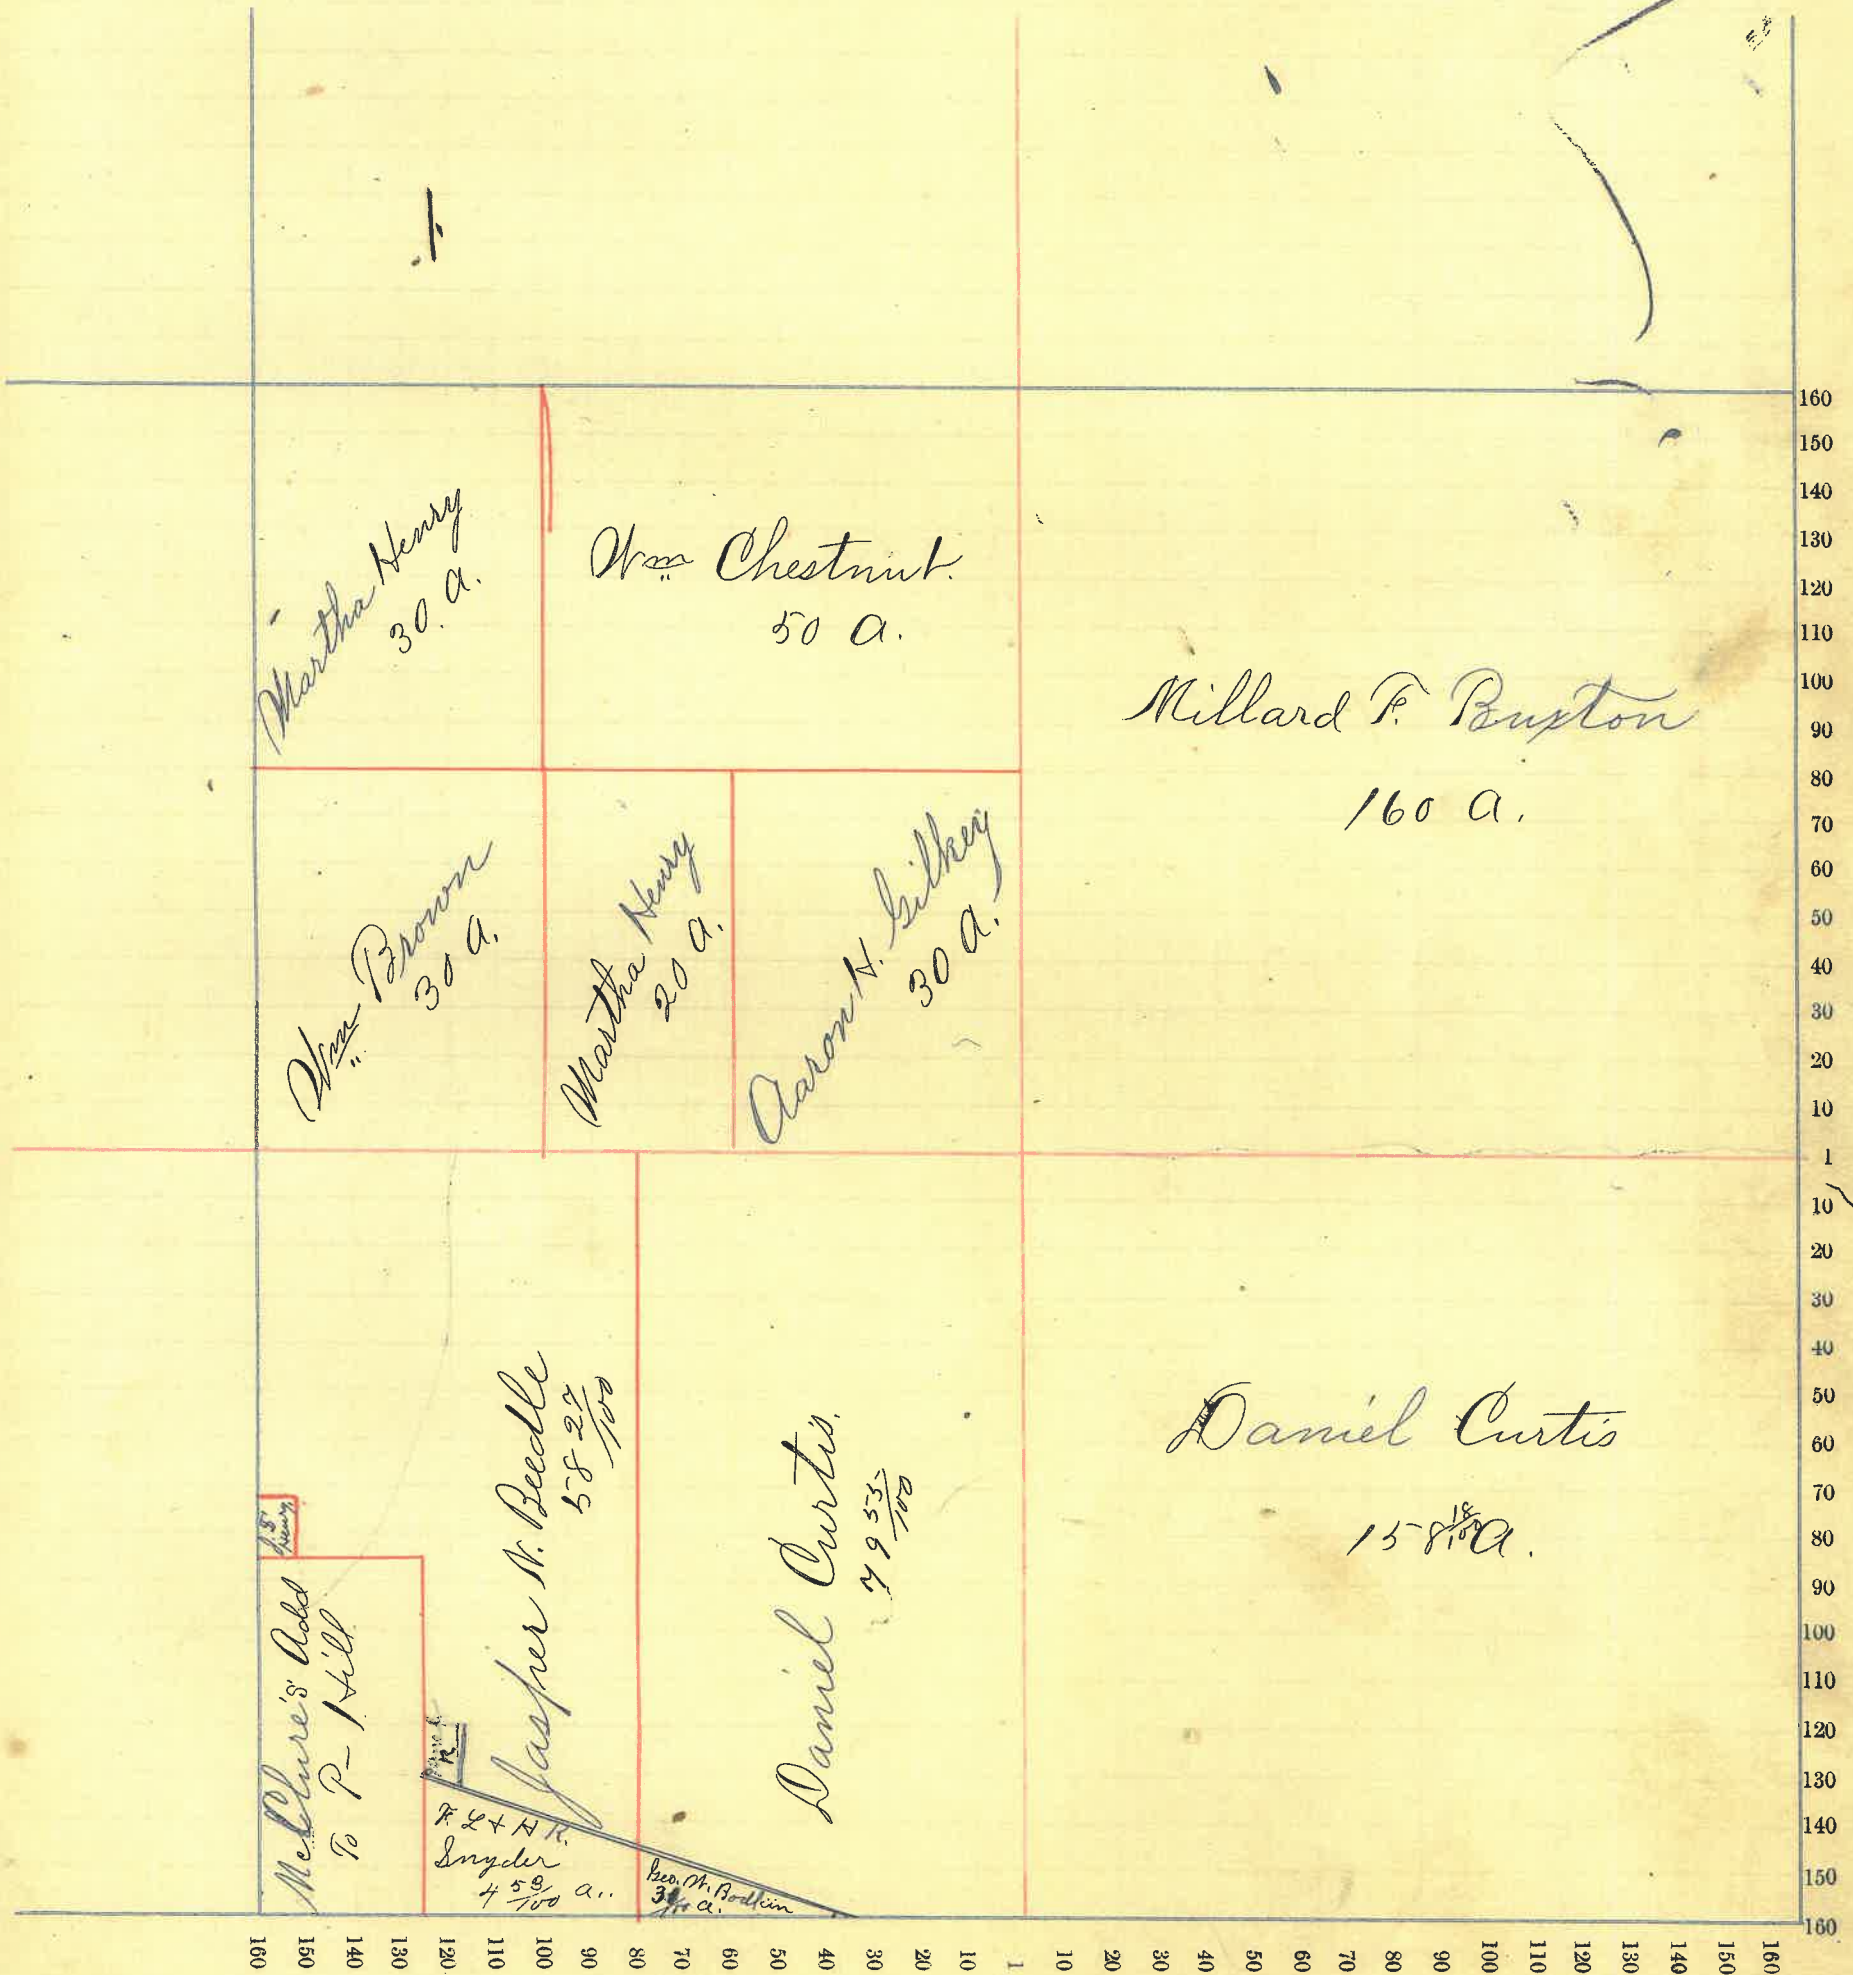 Martha Henry
30. a.
Wm Chestnut.
50 a.
Millard F. Buxton
160 a.
Wm Brown
30 a.
Martha Henry
20 a.
Aaron H. Gilkey
30 a.
Jasper N. Beedle
58 27/100
Daniel Curtis.
79 55/100
Daniel Curtis
158 18/100 a.
Henry
McClure's Add
To P- Hill
F. L + H R.
Snyder
4 58/100 a..
Geo. W. Bodkin
a.
160
150
140
130
120
110
100
90
80
70
60
50
40
30
20
10
1
10
20
30
40
50
60
70
80
90
100
110
120
130
140
150
160
160 150 140 130 120 110 100 90 80 70 60 50 40 30 20 10 1 10 20 30 40 50 60 70 80 90 100 110 120 130 140 150 160